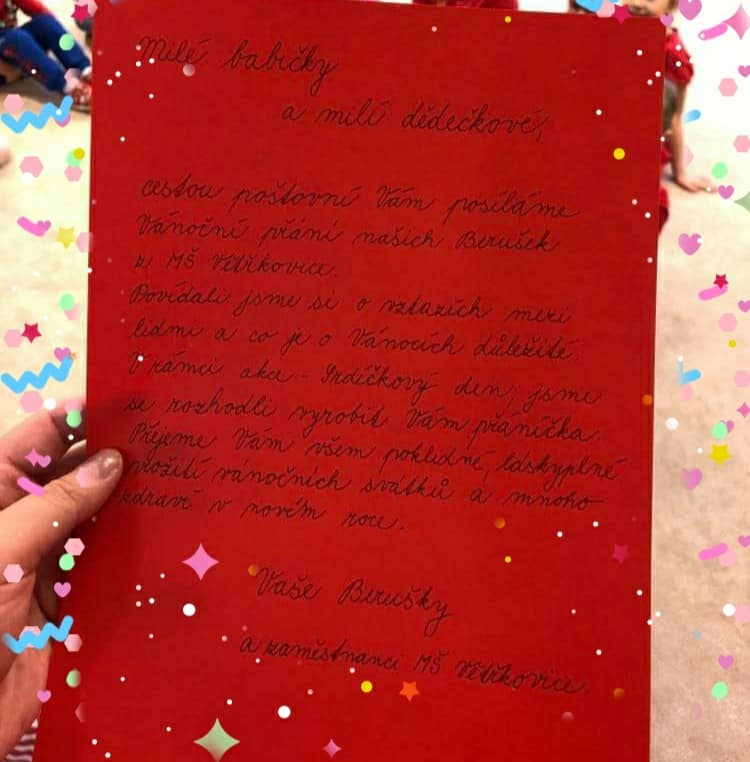 Milé babičky
a milí dědečkové,
cestou poštovní Vám posíláme
Vánoční přání našich Berušek
z MŠ Větřkovice.
Povídali jsme si o vztazích mezi
lidmi a co je o Vánocích důležité.
V rámci akce - Srdíčkový den, jsme
se rozhodli vyrobit Vám přáníčka.
Přejeme Vám všem poklidné, láskyplné
prožití vánočních svátků a mnoho
zdraví v novém roce.
Vaše Berušky
a zaměstnanci MŠ Větřkovice.